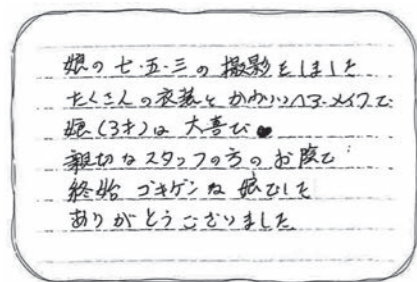 娘の七・五・三の撮影をしました
たくさんの衣装とかわいいヘア・メイクで
娘(3才)は大喜び♥
親切なスタッフの方のお陰で
終始ゴキゲンな娘でした
ありがとうございました